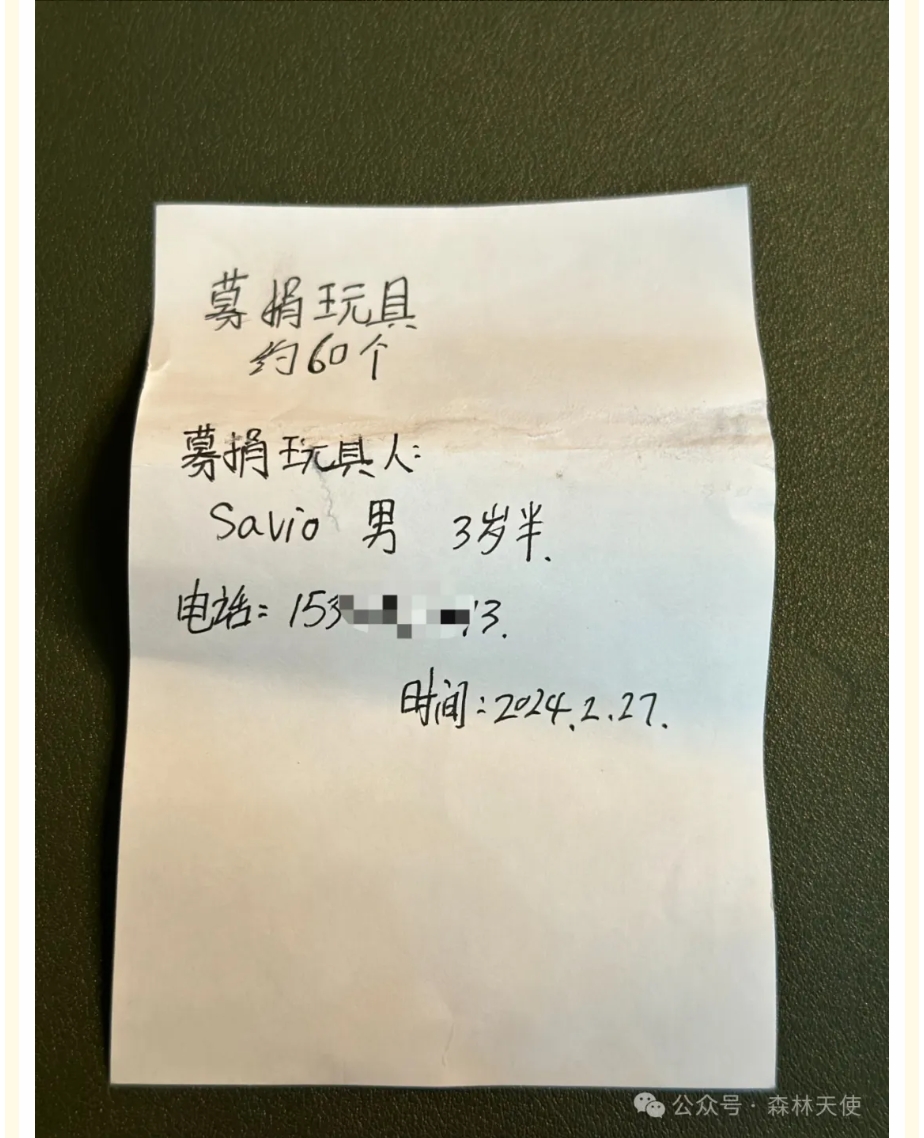 募捐玩具
约60个
募捐玩具人:
Savio 男 3岁半.
电话: 153 13.
时间: 2024.2.27.
公众号 · 森林天使